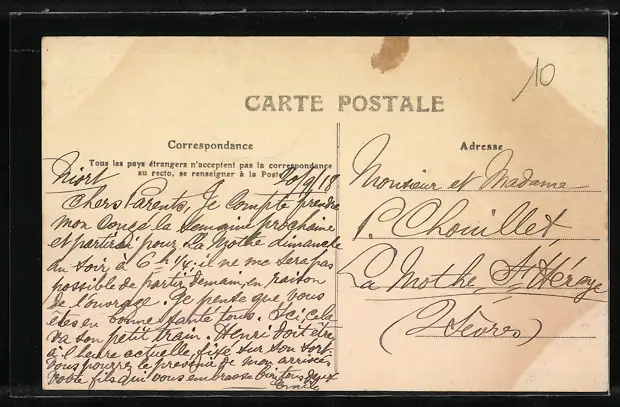 10
CARTE POSTALE
Correspondance
Tous les pays étrangers n'acceptent pas la correspondance
au recto, se renseigner à la Poste
Niort 20/9/18
Chers Parents, Je compte prendre
mon congé la semaine prochaine
et partirai pour La Mothe dimanche
au soir, à 6 h 1/4, il ne me sera pas
possible de partir demain, en raison
de l'ouvrage. Je pense que vous
êtes en bonne santé tous. Ici, cela
va son petit train. Henri doit être
à l'heure actuelle, fixé sur son sort.
Vous pourrez le prévenir de mon arrivée.
Votre fils qui vous embrasse bien tous deux
Emile
Adresse
Monsieur et Madame
P. Chouillet
La Mothe St Héraye
(2 Sèvres)